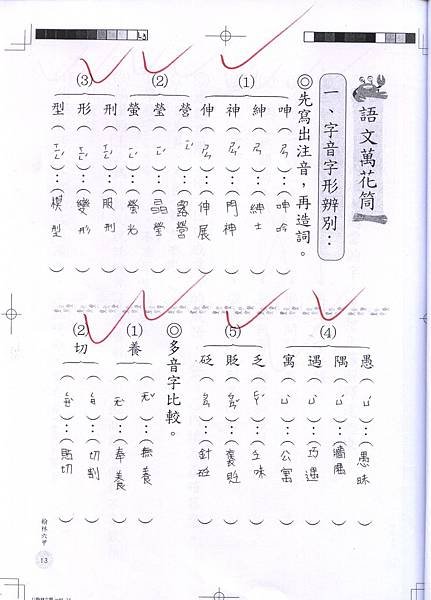 語文萬花筒
一、字音字形辨別：
◎先寫出注音，再造詞。
(1)
呻（ㄕㄣ）：（呻吟）
紳（ㄕㄣ）：（紳士）
神（ㄕㄣˊ）：（門神）
伸（ㄕㄣ）：（伸展）
(2)
營（ㄧㄥˊ）：（露營）
瑩（ㄧㄥˊ）：（晶瑩）
螢（ㄧㄥˊ）：（螢光）
(3)
刑（ㄒㄧㄥˊ）：（服刑）
形（ㄒㄧㄥˊ）：（變形）
型（ㄒㄧㄥˊ）：（模型）
(4)
愚（ㄩˊ）：（愚昧）
隅（ㄩˊ）：（牆隅）
遇（ㄩˋ）：（巧遇）
寓（ㄩˋ）：（公寓）
(5)
乏（ㄈㄚˊ）：（乏味）
貶（ㄅㄧㄢˇ）：（褒貶）
砭（ㄅㄧㄢ）：（針砭）
◎多音字比較。
(1)
養（ㄧㄤˇ）：（撫養）
（ㄧㄤˋ）：（奉養）
(2)
切（ㄑㄧㄝ）：（切割）
（ㄑㄧㄝˋ）：（貼切）
翰林六甲
13